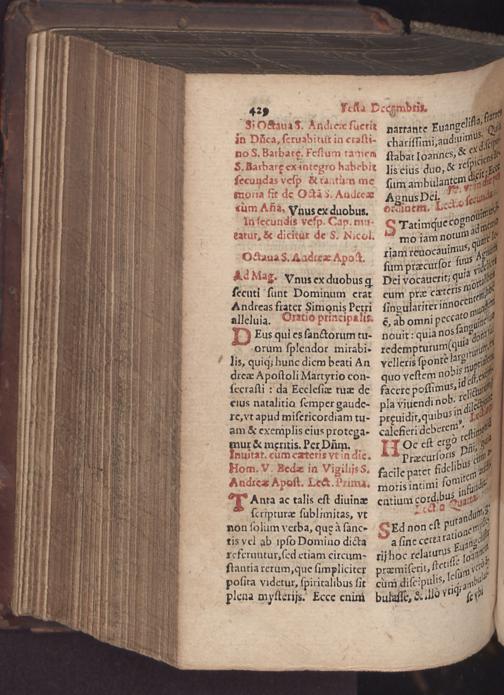 429
Festa Decembris.
Si Octaua S. Andreæ fuerit
in Dñca, seruabitur in crasti-
no S. Barbarę. Festum tamen
S. Barbarę ex integro habebit
secundas vesp & tantum me
moria fit de Octâ S. Andreæ
cùm Añā, Vnus ex duobus.
In secundis vesp. Cap. mu-
tatur, & dicitur de S. Nicol.
Octaua S. Andreæ Apost.
Ad Mag. Vnus ex duobus q
secuti sunt Dominum erat
Andreas frater Simonis Petri
alleluia. Oratio principalis.
DEus qui es sanctorum tu-
orum splendor mirabi-
lis, quiq; hunc diem beati An
dreæ Apostoli Martyrio con-
secrasti: da Ecclesiæ tuæ de
eius natalitio semper gaude-
re, vt apud misericordiam tu-
am & exemplis eius protega-
mur & meritis. Per Dñm.
Inuitat. cum cæteris vt in die.
Hom. V. Bedæ in Vigilijs S.
Andreæ Apost. Lect. Prima.
TAnta ac talis est diuinæ
scripturæ sublimitas, vt
non solùm verba, quę à sanc-
tis vel ab ipso Domino dicta
referuntur, sed etiam circum-
stantia rerum, que simpliciter
posita videtur, spiritalibus sit
plena mysterijs. Ecce enim
narrante Euangelista, fratres
charissimi, audiuimus,
stabat Ioannes, & ex discipu
lis eius duo, & respiciens
sum ambulantem dicit: Ecce
Agnus Dei.
ordinem. Lectio secunda
STatimque cognouimus,
mo iam notum ad
riam reuocauimus, quare
sum præcursor suus Agnum
Dei vocauerit; quia videlicet
eum præ cæteris mortalibus
singulariter innocentem,
ē, ab omni peccato mundum
nouit: quia nos sanguine suo
redempturum (quia dona
velleris sponte largiturum,
quo vestem nobis nuptialem
facere possimus, id est,
pla viuendi nob. relicturum
preuidit, quibus in dilectione
calefieri deberemꝰ.
HOc est ergò testimonium
Præcursoris Dñi,
facile patet fidelibus cum
moris intimi fomitem
entium cordibus infudisse
Lectio Quarta
SEd non est putandum,
a sine certa ratione
rij hoc relaturus Euangelista
præmiserit, stetisse Ioannem
cùm discipulis, Iesum verò
bulasse, & illo vtiq; ambulan
se vbi